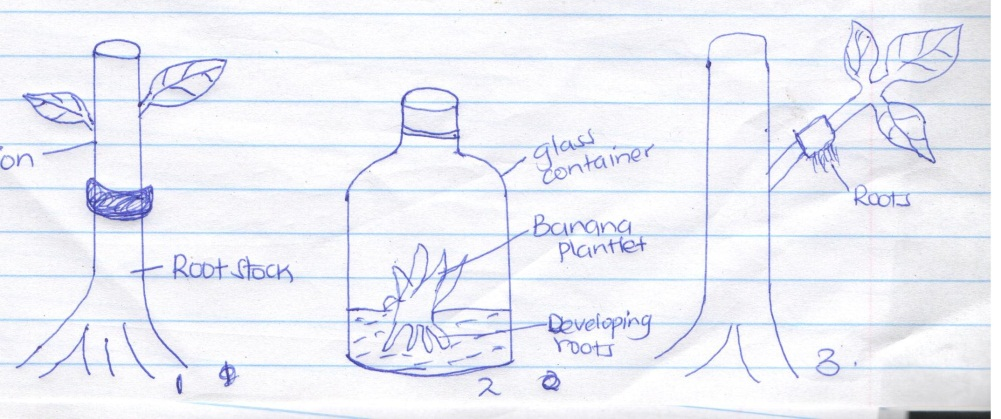 on
Root stock
1
glass
container
Banana
plantlet
Developing
roots
2
Roots
3.